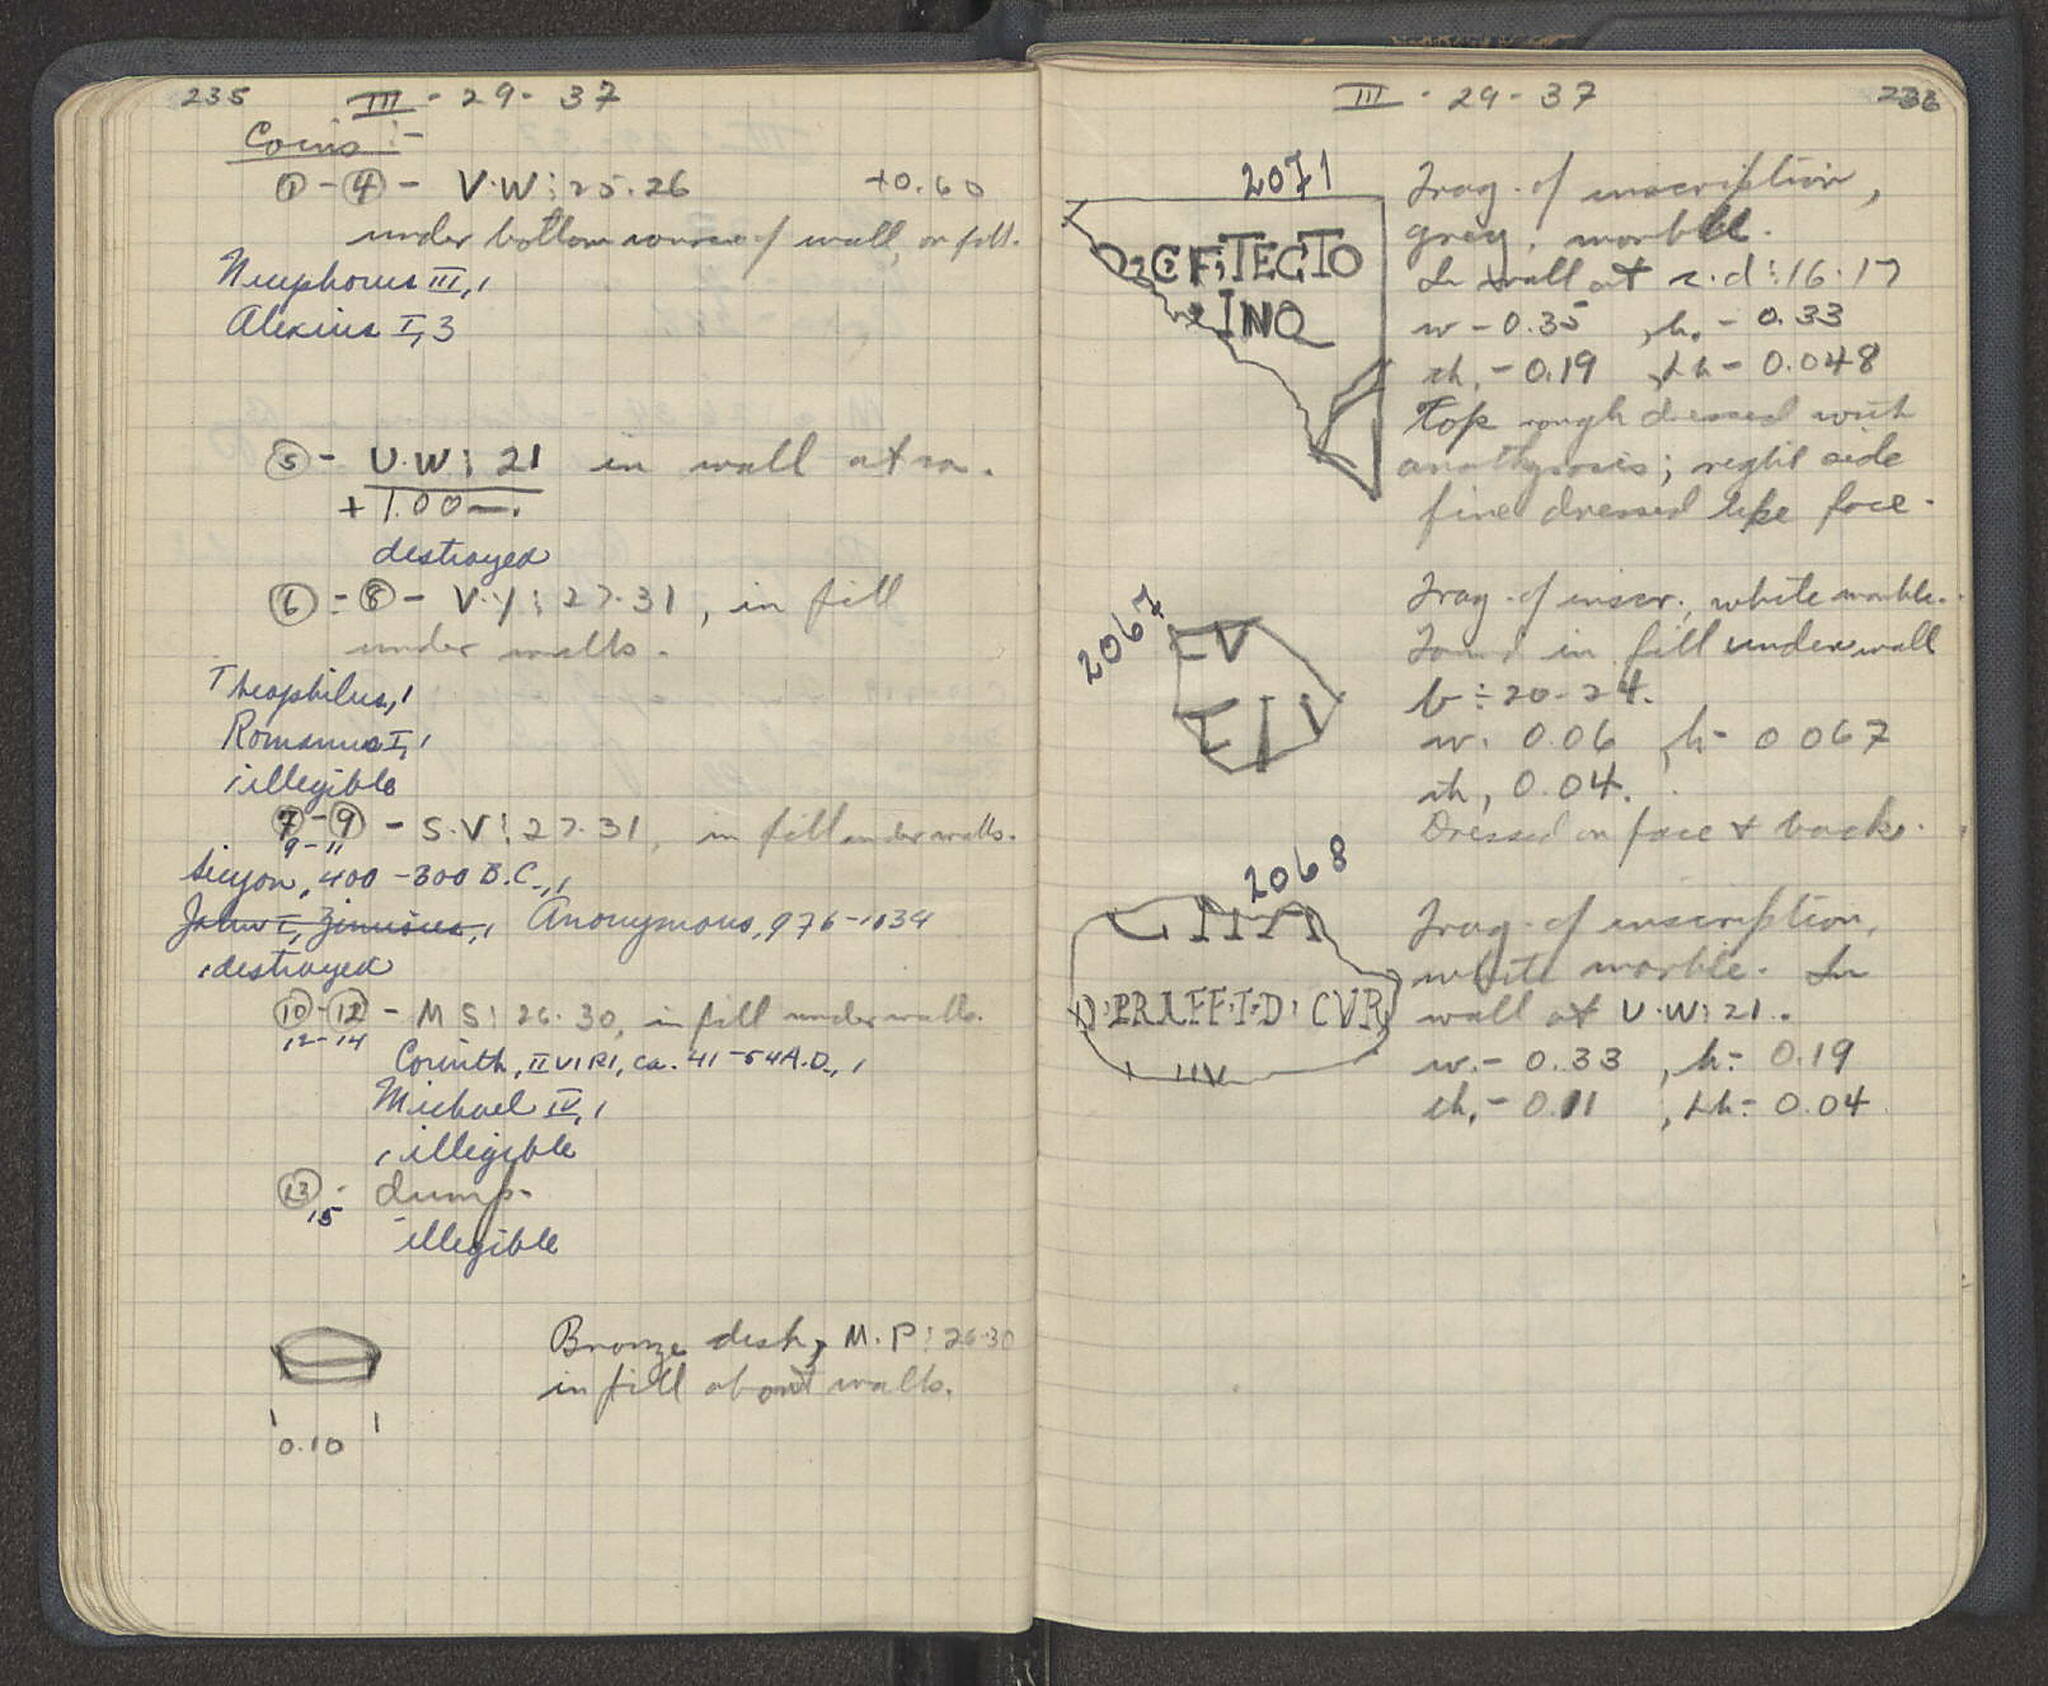 235 III - 29 - 37
Coins :-
① - ④ - V·W: 25.26 +0.60
under bottom course of wall, on fill.
Nicephorus III, 1
Alexius I, 3
⑤ - U·W: 21 in wall at
+ 1.00 —.
destroyed
⑥ - ⑧ - V·Y: 27.31, in fill
under walls.
Theophilus, 1
Romanus I, 1
1 illegible
⑦ - ⑨ - S·V: 27.31, in fill under walls.
9 - 11
Sicyon, 400 - 300 B.C., 1
John I, Zimisces, 1 Anonymous, 976 - 1034
1 destroyed
⑩ - ⑫ - M S: 26.30, in fill under walls.
12 - 14
Corinth, II VIRI, ca. 41 - 54 A.D., 1
Michael IV, 1
1 illegible
⑬ - dump.
15
illegible
Bronze dish, M.P: 26.30
in fill about walls.
0.10
III - 29 - 37 236
2071
C·F·TECTO
INQ
Frag. of inscription,
grey, marble.
In wall at r.d: 16.17
w - 0.35, h. - 0.33
th. - 0.19, Lh - 0.048
Top rough dressed with
anathyrosis; right side
fine dressed like face.
2067
Frag. of inscr., white marble.
Found in fill under wall
b: 20-24.
w. 0.06, h - 0 067
th, 0.04.
Dressed on face & back.
2068
D·PRAEF·I·D· CVR
Frag. of inscription,
white marble. In
wall at U·W: 21.
w. - 0.33, h: 0.19
th. - 0.11, Lh: 0.04